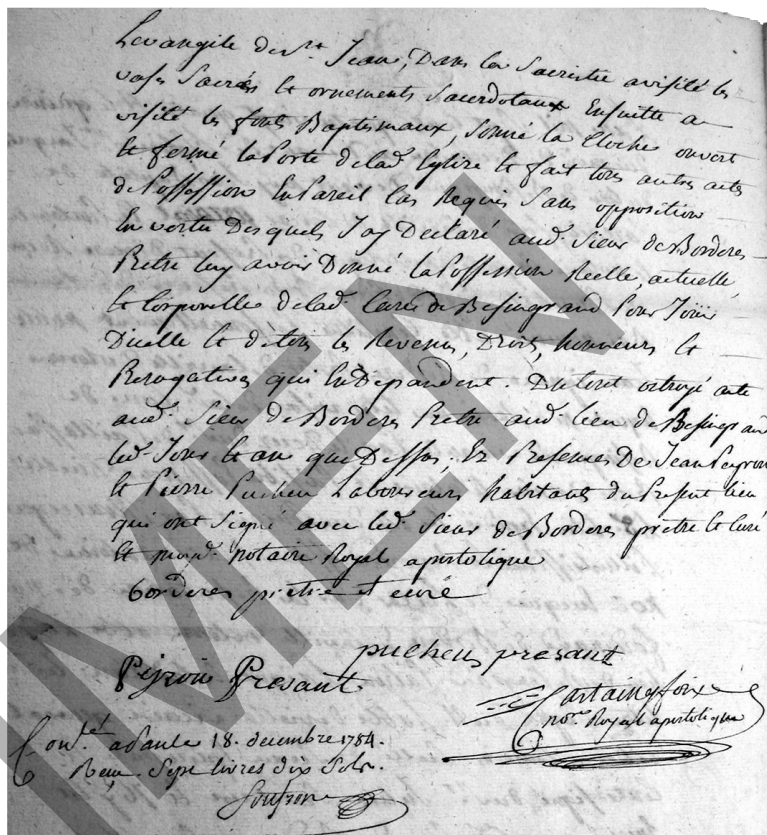 Levangile de St Jean, Dans la Sacristie a visité les
vases Sacrés et ornements Sacerdotaux Ensuitte a
visité les fonts Baptismaux, Sonné la Cloche ouvert
et fermé la Porte de lad. Eglise et fait tous autres actes
de Possession En Pareil Cas Requis Sans opposition
En vertu Desquels Jay Declaré aud. Sieur de Borderes
Pretre luy avoir Donné la Possession Reelle, actuelle,
et Corporelle de lad. Cure de Besingrand Pour Joüir
D'icelle et de tous les Revenus, Droits, honneurs et
Prerogatives qui En Dependent. Du tout octroyé acte
aud. Sieur de Borderes Pretre aud. lieu de Besingrand
led. Jour et an que Dessus, Ez Presences De Jean Peyron
et Pierre Pucheu Laboureurs habitants du Present lieu
qui ont Signé avec led. Sieur de Borderes prêtre et Curé
et moyd. notaire Royal apostolique
borderes pretre et curé
pucheu presant
Peiron Presant
notre Royal apostolique
Conlé a 18. decembre 1784.
Reçu Sept livres dix Sols.